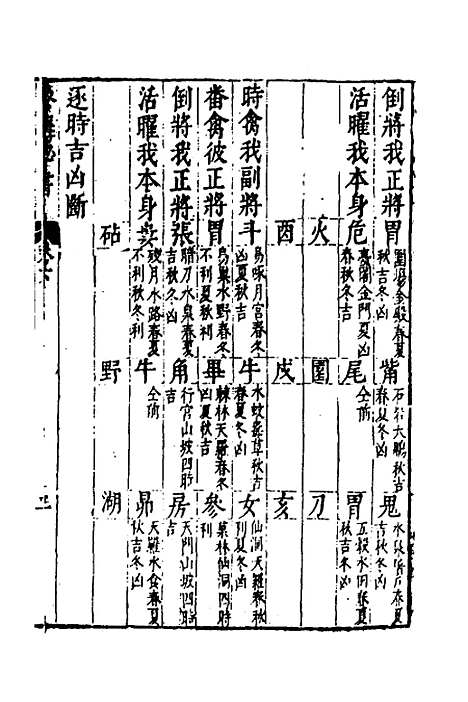 倒將我正將胃 圍場金殿春夏秋吉冬凶 觜 石岩大鵬秋吉春夏冬凶 鬼
活曜我本身危 高閣金門夏凶春秋冬吉 尾 仝前 胃 五穀水田春夏秋吉冬凶
火 圍 刀
酉 戌 亥
時禽我副將斗 月宮春冬凶夏秋吉 牛 水蚊蓋草秋吉春夏冬凶 女 仙洞天羅春秋利夏冬凶
番禽彼正將胃 烏巢水野春冬不利夏秋利 畢 棘林天羅春冬凶夏秋吉 參 菓林仙洞四時利
倒將我正將張 腊刀水泉春夏吉秋冬凶 角 行宮山坡四時吉 房 天門山坡四時吉
活曜我本身婁 月水路春夏不利秋冬利 牛 仝前 昴 天羅水食春夏秋吉冬凶
砧 野 湖
逐時吉凶斷